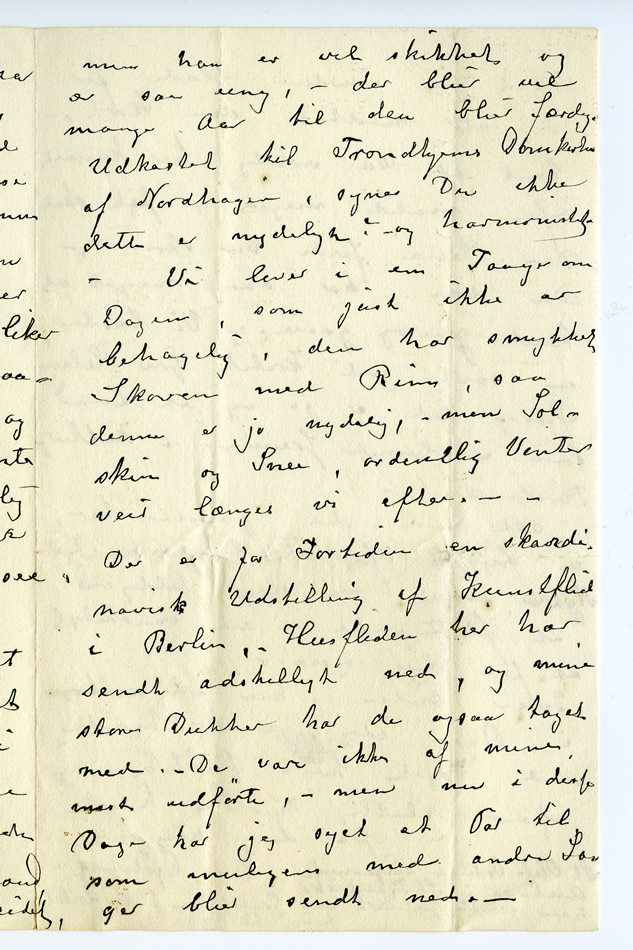 men han er vel skikket og
er saa ung, – der blir vel
mange Aar til den blir færdig.
Udkastet til Trondhjems Domkirke
af Nordhagen, synes Du ikke
dette er nydeligt? – og harmonisk
– Vi lever i em Taage om
Dagen, som just ikke er
behagelig, den har smykket
Skoven med Rim, saa
denne er jo nydelig, – men Sol-
skin og Snee, ordentlig Vinter
veir længes vi efter. – –
Der er for Tortiden en skandi-
navisk Udstilling af Kunstflid
i Berlin, – Husfliden her har
sendt adskilligt ned, og mine
store Dukker har de ogsaa taget
med. – De var ikke af mine
mest udførte, – men nu i disse
Dage har jeg syet et Par til
som muligens med andre Sa
ger blir sendt ned. –
liker
aa-
og
see